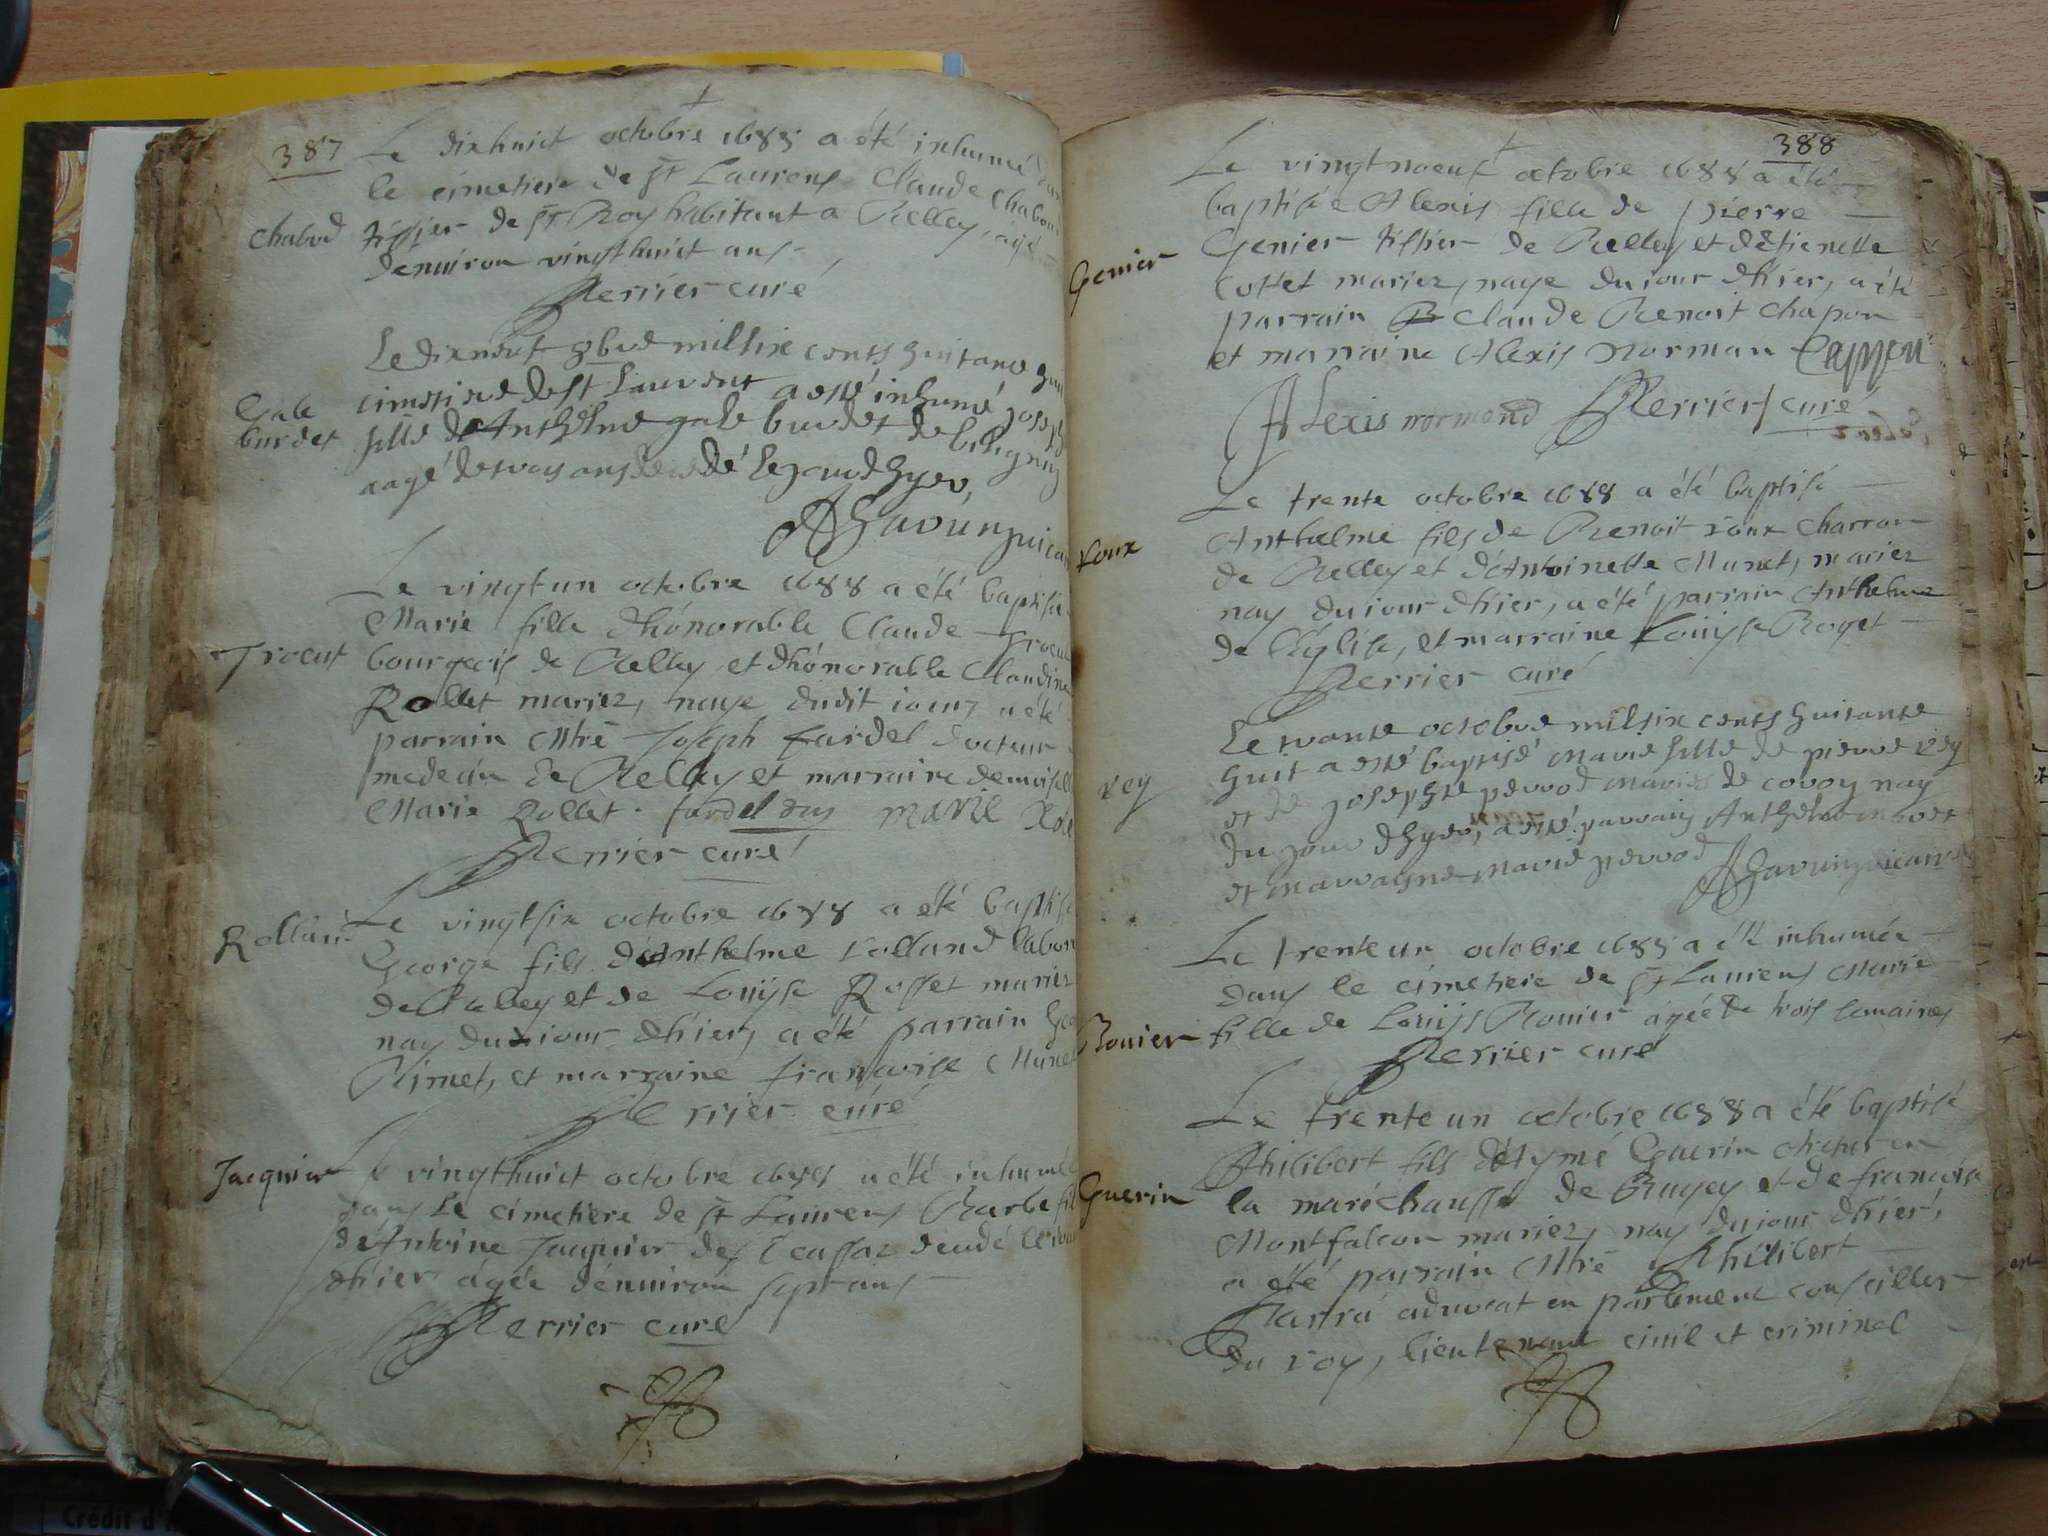 387
Le dixhuict octobre 1688 a été inhumé dans
le cimetiere de st Laurens Claude Chabod
chabod
tissier de st Roy habitant a Belley, agé
denuiron vingthuict ans
Perrier curé
Le dixneuf 8bre mil six cents huitante huit
cimetiere de st Laurent a esté inhumé joseph
Gale
burdet
fille de Anthelme gale burdet de bitigniz
aagé de trois ans decedé le jour dhyer,
vicaire
Le vingt un octobre 1688 a été baptisée
Marie fille dhónorable Claude Trocut
Trocut
bourgeois de Belley et dhónorable Claudine
Rollet mariez, naye dudit iour, a été
parrain Mtre Joseph fardel docteur
medecin de Belley et marraine demoiselle
Marie Rollet. fardel marie
Perrier curé
Le vingtsix octobre 1688 a été baptisé
Rollan
George fils d'Anthelme rolland labour
de et de Louyse Rosset mariez
nay du iour dhier, a été parrain
Rimet, et marraine francoise Munet
Perrier curé
Jacquier
Le vingthuict octobre 1688 a été inhumée
dans le cimetiere de st Laurens Barbe fille
d'Antoine Jacquier des Ecassaz decedé le iour
dhier agée dénuiron sept ans
Perrier curé
388
Le vingtnoeuf octobre 1688 a été
baptisée Alexis fille de pierre
Genier
Genier tissier de Belley et d'Etienette
Cottet mariez, naye du iour dhier, a été
parrain Claude Benoit Chapon
et marraine Alexis Norman Cappon
Alexis normond Perrier curé
Le trente octobre 1688 a été baptisé
Anthelme fils de Benoit roux charron
roux
de Belley et d'Antoinette Munet, mariez
nay du iour dhier, a été parrain Anthelme
de l'Eglise, et marraine Louyse Royet
Perrier curé
Le trante octobre mil six cents huitante
huit a esté baptisé marie fille de pierre rey
rey
et de josephte perrod mariés de coron nay
du jour dhyer, a esté parrain Anthelme
et marrayne marie perrod
vicaire
Le trenteun octobre 1688 a été inhumée
dans le cimetiere de st Laurens Marie
Bonier
fille de Louys Bonier agée de trois semaines
Perrier curé
Le trente un octobre 1688 a été baptisé
Philibert fils d'Eymé Guerin archer en
Guerin
la maréchaussé de Bugey et de francoise
Montfalcon mariez, nay du jour dhier,
a été parrain Mtre Philibert
aduocat en parlement conseiller
du roy, lieutenant ciuil et criminel
Crédit d'A